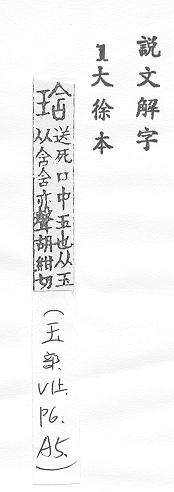 說文解字
1大徐本
琀
送死口中玉也从玉
从含含亦聲胡紺切
(玉部.V1上.P6.A5.)